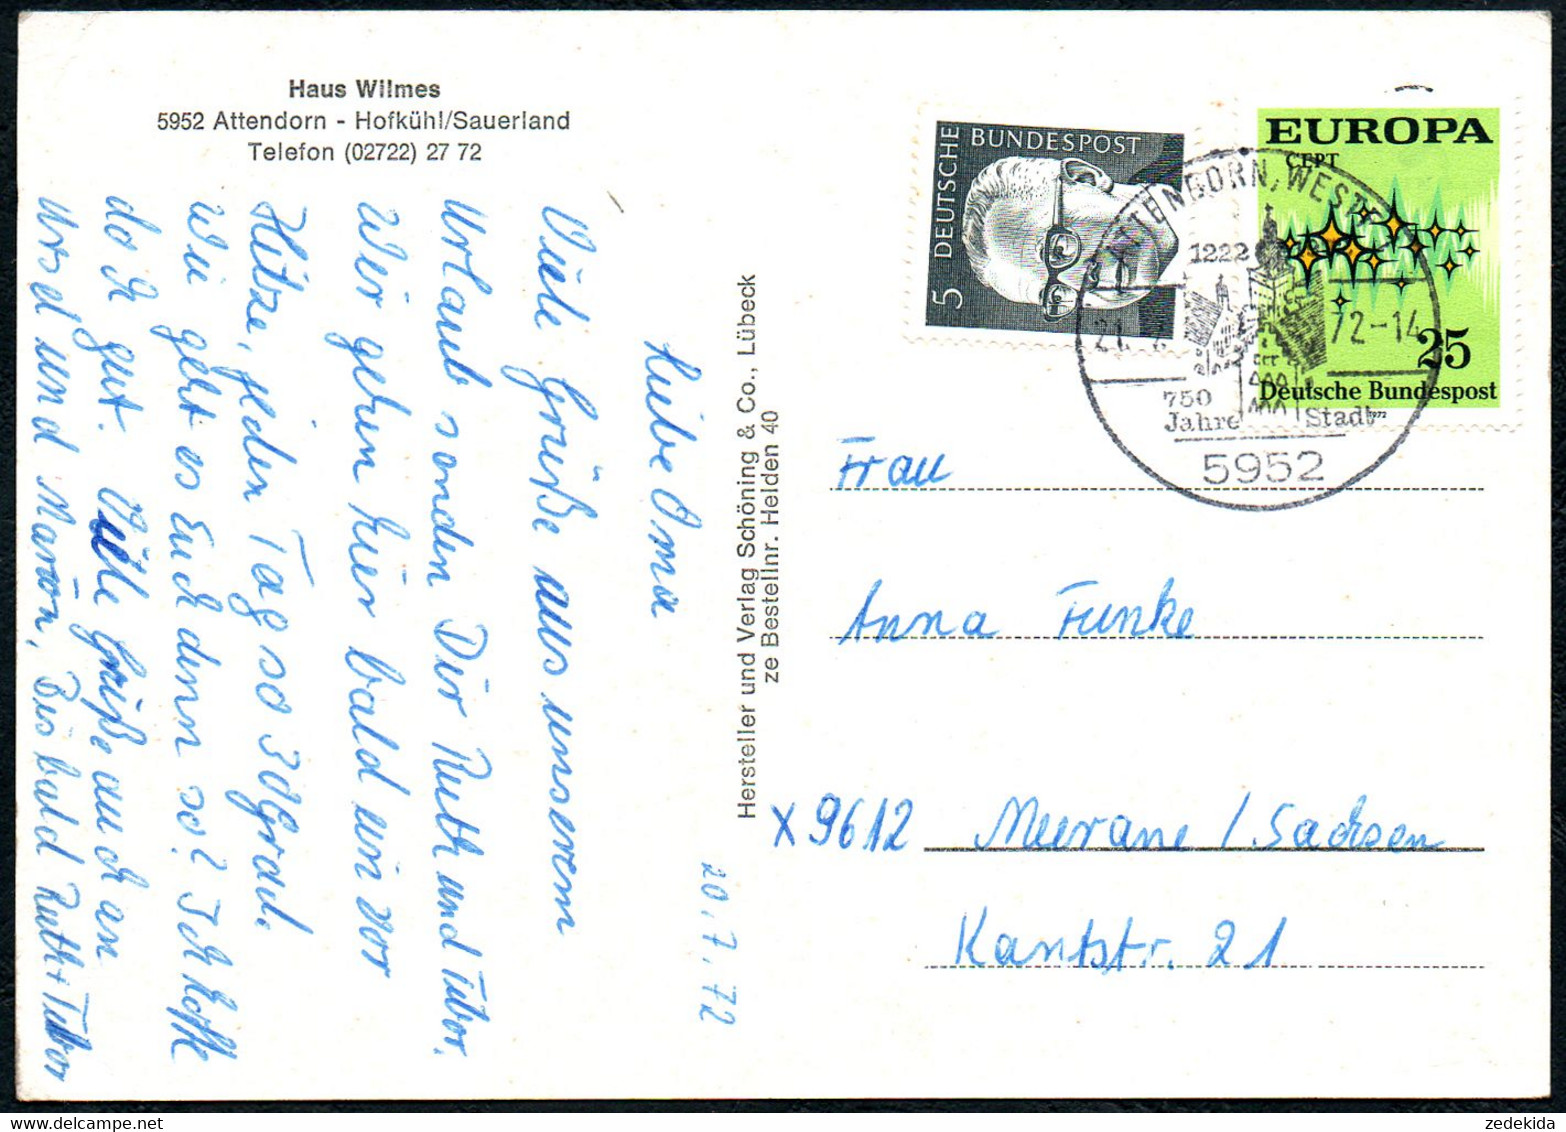 Haus Wilmes
5952 Attendorn - Hofkühl/Sauerland
Telefon (02722) 27 72
20.7.72
Liebe Oma
Viele Grüße aus unserem
Urlaub senden Dir Ruth und Tibor.
Wir gehen hier bald ein vor
Hitze, jeden Tag so 30 Grad.
Wie geht es Euch denn so? Ich hoffe
doch gut. Viele Grüße auch an
Ursel und Marion, Bis bald Ruth + Tibor
Hersteller und Verlag Schöning & Co., Lübeck
ze Bestellnr. Helden 40
DEUTSCHE BUNDESPOST
5
EUROPA
CEPT
25
Deutsche Bundespost
1972
ATTENDORN, WESTF
1222
72-14
750
Jahre Stadt
5952
Frau
Anna Funke
X 9612 Meerane / Sachsen
Kantstr. 21
zedekida